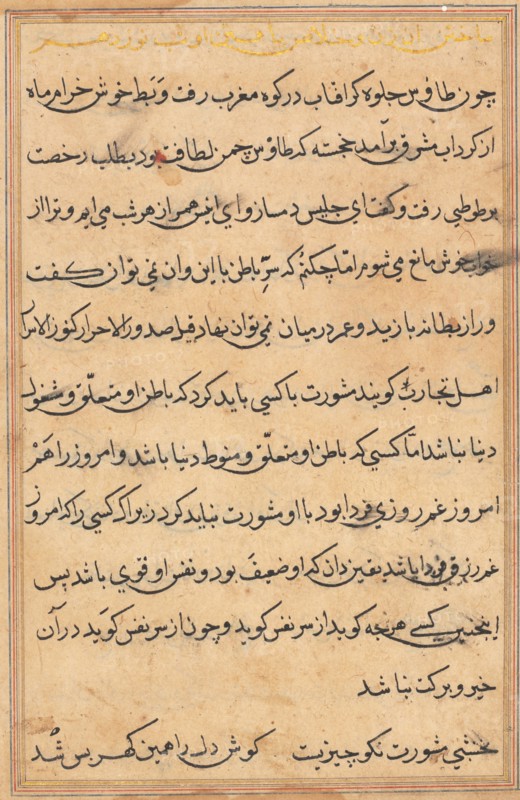 چون طاوس جلوه کر افتاب در کوه مغرب رفت و بط خوش خرام ماه
از کرداب مشرق برآمد خجسته که طاوس چمن لطافت بود بطلب رخصت
بر طوطی رفت و کفت ای جلیس دمساز و ای انیس همراز هر شب می ایم و ترا از
خواب خوش مانع می شوم اما چکنم که سرّ باطن با این و ان نمی توان کفت
و راز بطانه با زید و عمر در میان نمی توان نهاد قیل صدور الاحرار کنوز الاسرار
اهل تجارب کویند مشورت با کسی باید کرد که باطن او متعلّق و مشغول
دنیا نباشد امّا کسی که باطن او متعلّق و منوط دنیا باشد و امروز را هَمْ
امروز غم روزی فردا بود با او مشورت نباید کرد زیراکه کسی را که امروز
غم رزق فردا باشد یقین دان که او ضعیف بود و نفس او قوی باشد پس
اینچنین کسی هرچه کوید از سر نفس کوید و چون از سر نفس کوید در آن
خیر و برکت نباشد
نخشبی مشورت نکو چیزیست کوش دل را همین کهر بس شُد